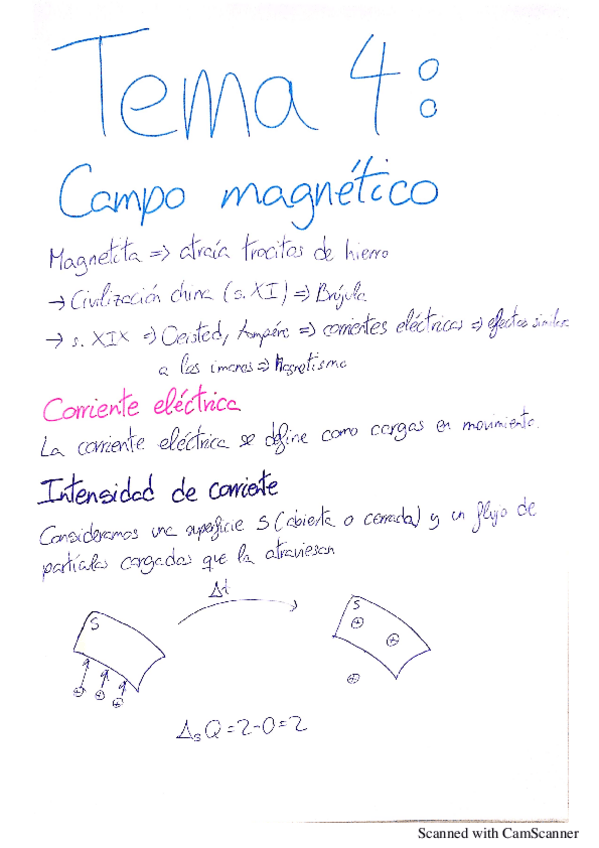 Tema 4:
Campo magnético
Magnetita => atraía trocitos de hierro
→ Civilización china (s. XI) => Brújula
→ s. XIX => Oersted, Ampére => corrientes eléctricas => efectos similares
a los imanes => Magnetismo
Corriente eléctrica
La corriente eléctrica se define como cargas en movimiento.
Intensidad de corriente
Consideramos una superficie S (abierta o cerrada) y un flujo de
partículas cargadas que la atraviesan
Δt
S
S
+
+
+ + +
+
ΔₛQ = 2-0 = 2
Scanned with CamScanner